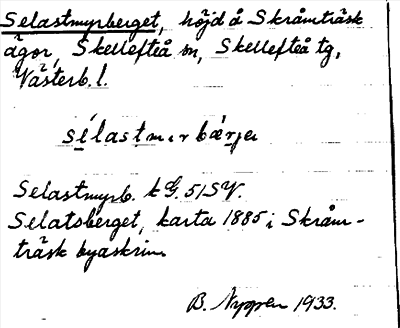 Selastmyrberget, höjd å Skråmträsk
ägor, Skellefteå sn, Skellefteå tg,
Västerb. l.
sélastmyrbærjə
Selastmyrb. k G. 51 SV.
Selatsberget, karta 1885 i Skråm-
träsk byaskrin.
B. Nyppen 1933.